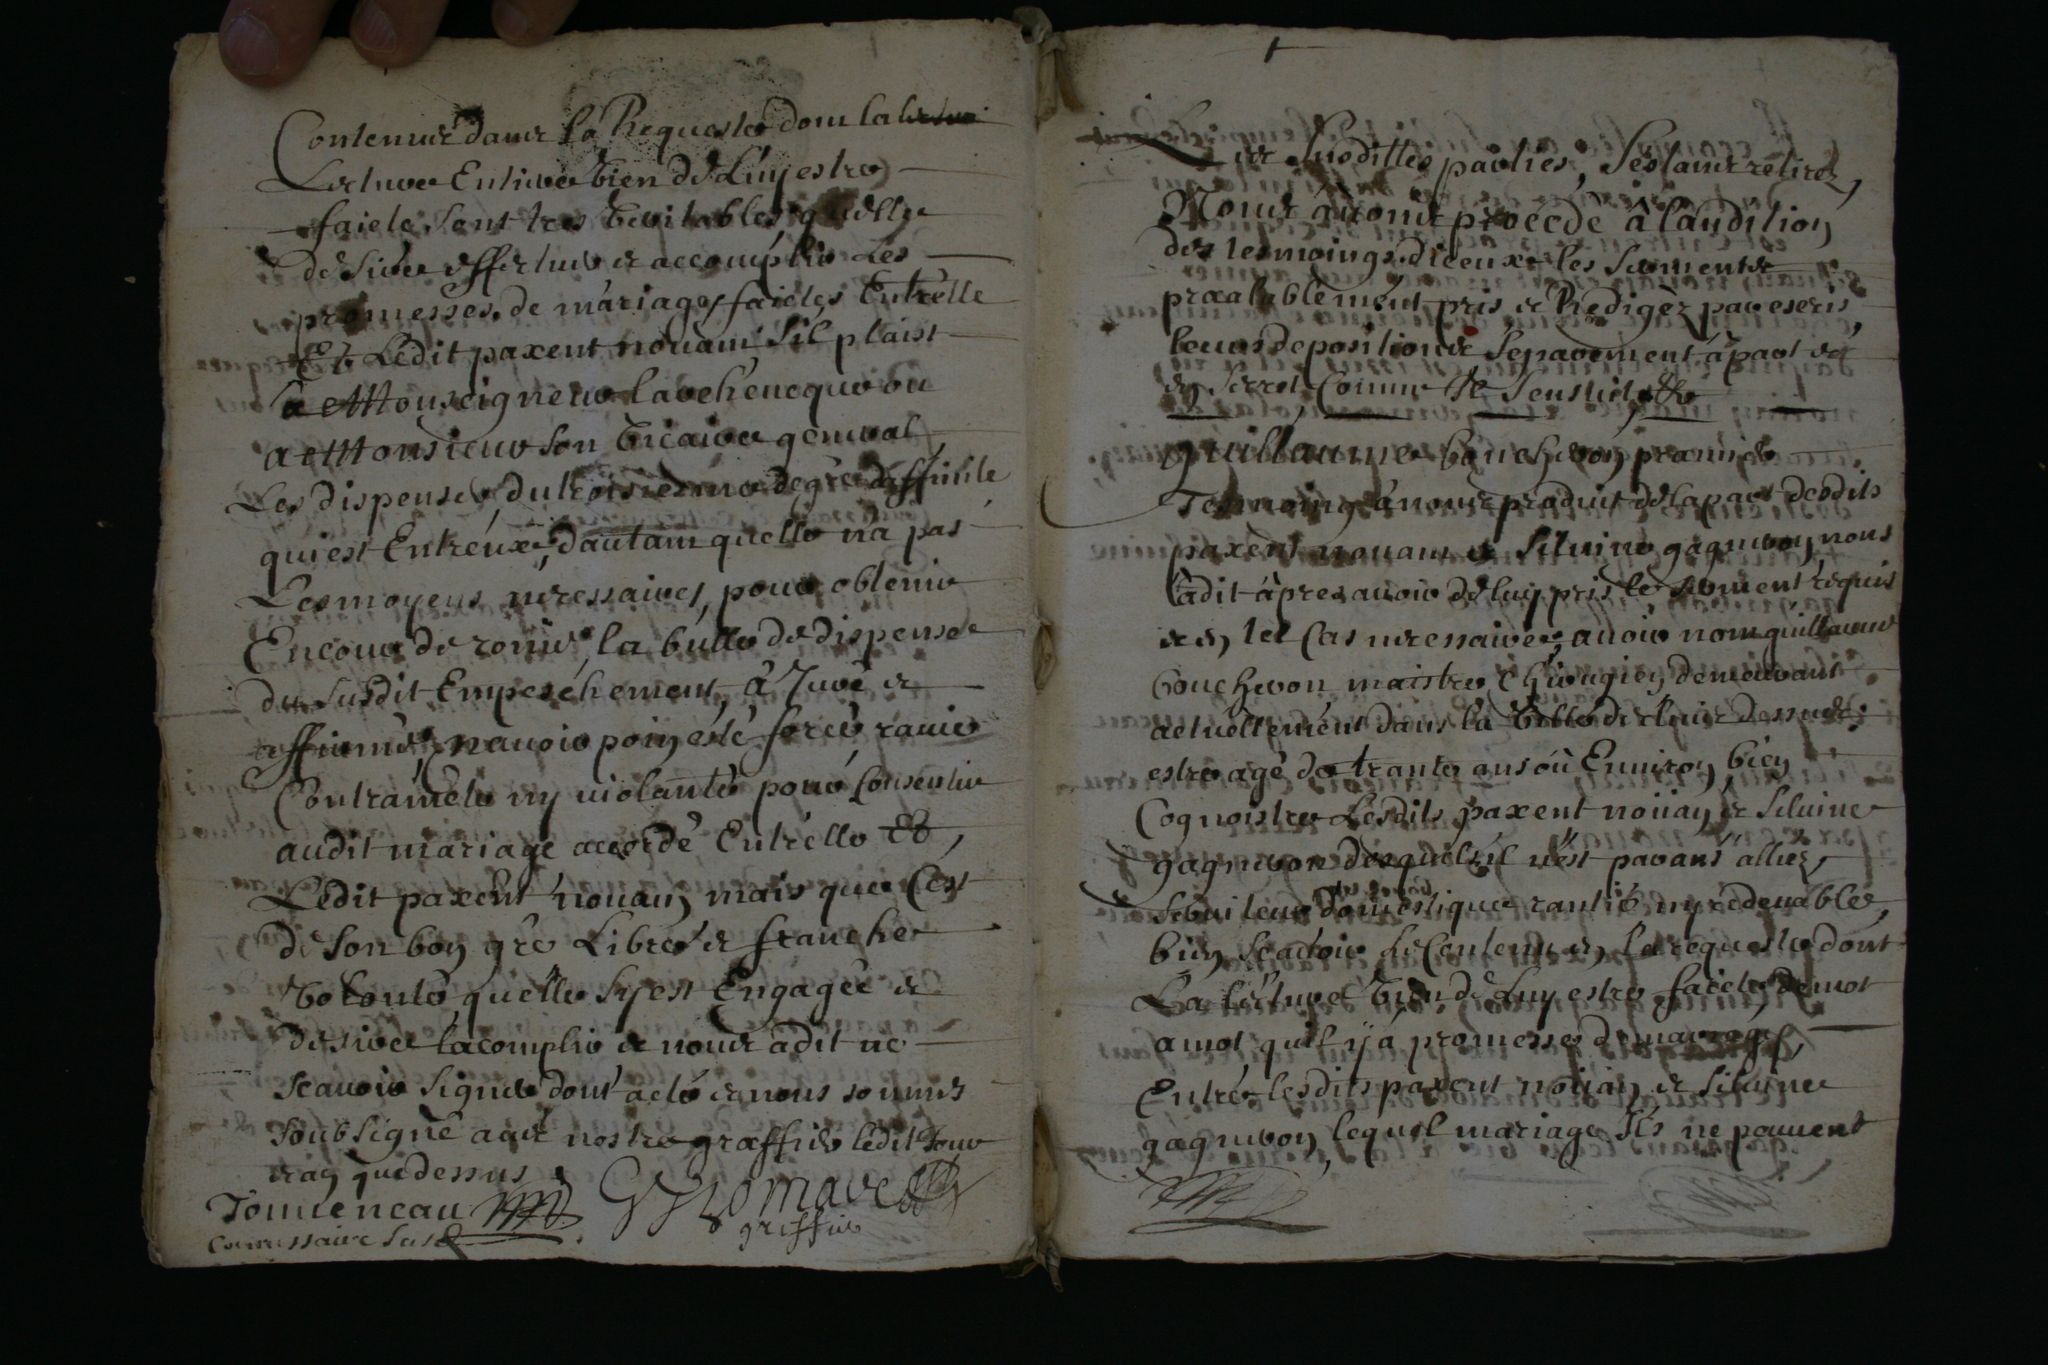 Contenues dans la Requeste dont la
Lecture Entiere bien de Luy estre
faicte sont tres veritables quelle
desire effectuer et accomplir Les
promesses de mariage faictes Entrelle
Et Ledit paxent nouam sil plaist
a Monseigneur larchevecque ou
a Monsieur son vicaire general
Les dispenser du troisiesme degré daffinité
qui est Entreuxe, dautant quelle na pas
Les moyens necessaires pour obtenir
Encour de rome la bulle de dispense
du susdit Empeschement, à Juré et
affirmé navoir poin esté forcée ravie
Contrainte ny violantée pour Consentir
audit mariage accordé Entrelle Et
Ledit paxent nouan mais que Cest
de son bon gré Libre et franche
volonté quelle sy est Engagée et
desire lacomplir et nous a dit ne
scavoir signer dont acte et nous sommes
soubsigné avec nostre greffier ledit Jour
et an que dessus
greffier
Les susdittes parties sestant retirez
Nous avons procédé à laudition
des tesmoings diceux les serments
praalablement pris et Redigez par escris
leurs depositions separement à part et
en secret Comme
guillaume boucheron premier
Tesmoing à nous produit de la part desdits
paxent nouam et silvine gagneron nous
a dit àpres avoir de luy pris le serment requis
et en tel Cas necessaire, avoir nom guillaume
boucheron maistre Chirugien demeurant
actuellement dans la ville de
estre agé de trante ans où Environ, bien
Cognoistre Lesdits paxent noüan et silvine
gagneron desquels il nest parans alliez
serviteur domestique ny redevable
bien scavoir le Contenu en la requeste dont
La lecture vien de Luy estre faicte de mot
a mot quil y a promesses de mariage
Entre lesdits paxent noüan et silvine
gagneron, lequel mariage Ils ne peuvent